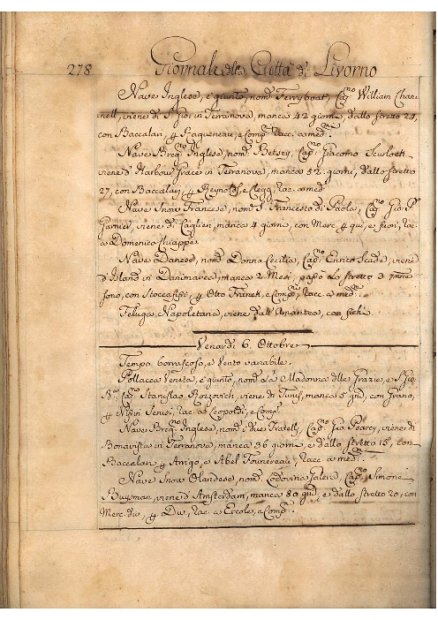 278 Giornale della Città di Livorno
Nave Inglese, è giunto, nom.ª Ferryboat, Cap.no William Chan-
nell, viene di S. Gio: in Terranova, manca 42 giorni, dallo stretto 21,
con Baccalari, e Comp. racc. a med.
Nave Brig.no Inglese, nom.º Betsey, Cap.no Giacomo
viene d'Harbour Grace in Terranova, manca 52 giorni, dallo stretto
27, con Baccalari, p. Reynolds, e Clegg, rac. a med.
Nave Snow Francese, nom.º S. Francesco di Paola, Cap.no Gio: B.
Garnier, viene di Caglieri, manca 4 giorni, con Merc. p. qui, e fuori, rac.
a Domenico Chiappe
Nave Danese, nom.ª Donna Cecilia, Cap.no Enrico viene
d'Island in Danimarca, manca 2 Mesi, passò lo stretto
sono, con Stoccafissi p. Otto Franck, e Comp. racc. a med.
Feluga Napoletana, viene dall'Amantea, con fichi
Venerdì 6. Ottobre
Tempo borrascoso, e Vento variabile.
Pollacca Veneta, è giunto, nom.ª La Madonna delle Grazie, e S. Gio:
N.º Cap.no Stanislao viene di Tunis, manca 5 gni, con Grano,
p. rac. a Leopoldi, e Comp.
Nave Brig.no Inglese, nom.º due Fratelli, Cap.no Gio: Percey, viene di
Bonavista in Terranova, manca 36 giorni, e dallo stretto 15, con
Baccalari p. Arrigo, e Abel Fonnereau, racc. a med.
Nave Snow Olandese, nom.º Cap.no Simone
viene d'Amsterdam, manca 80 gni, e dallo stretto 20, con
Merc. div. p. Div. rac. a Ercole, e Comp.